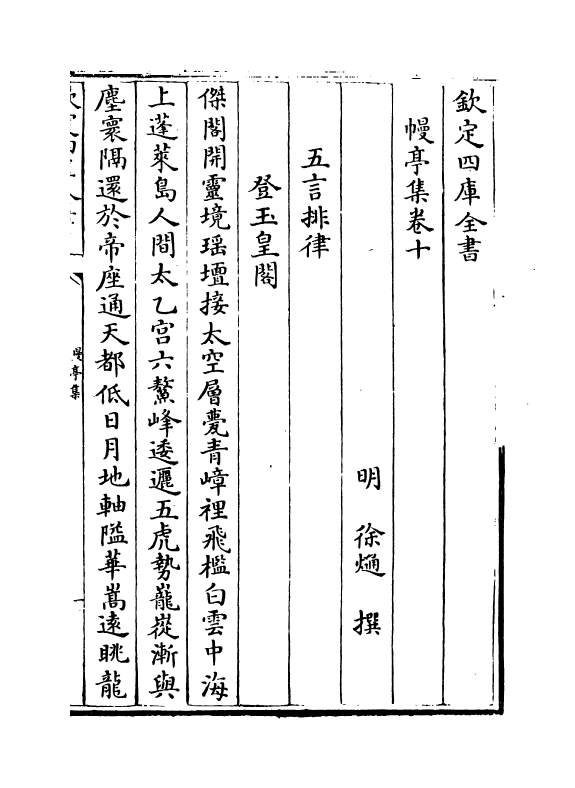 欽定四庫全書
幔亭集卷十
明 徐熥 撰
五言排律
登玉皇閣
傑閣開靈境瑶壇接太空層甍青嶂裡飛檻白雲中海
上蓬萊島人間太乙宫六鰲峰逶邐五虎勢巃嵸漸與
塵寰隔還於帝座通天都低日月地軸隘華嵩遠眺龍
欽定四庫全書
幔亭集
一